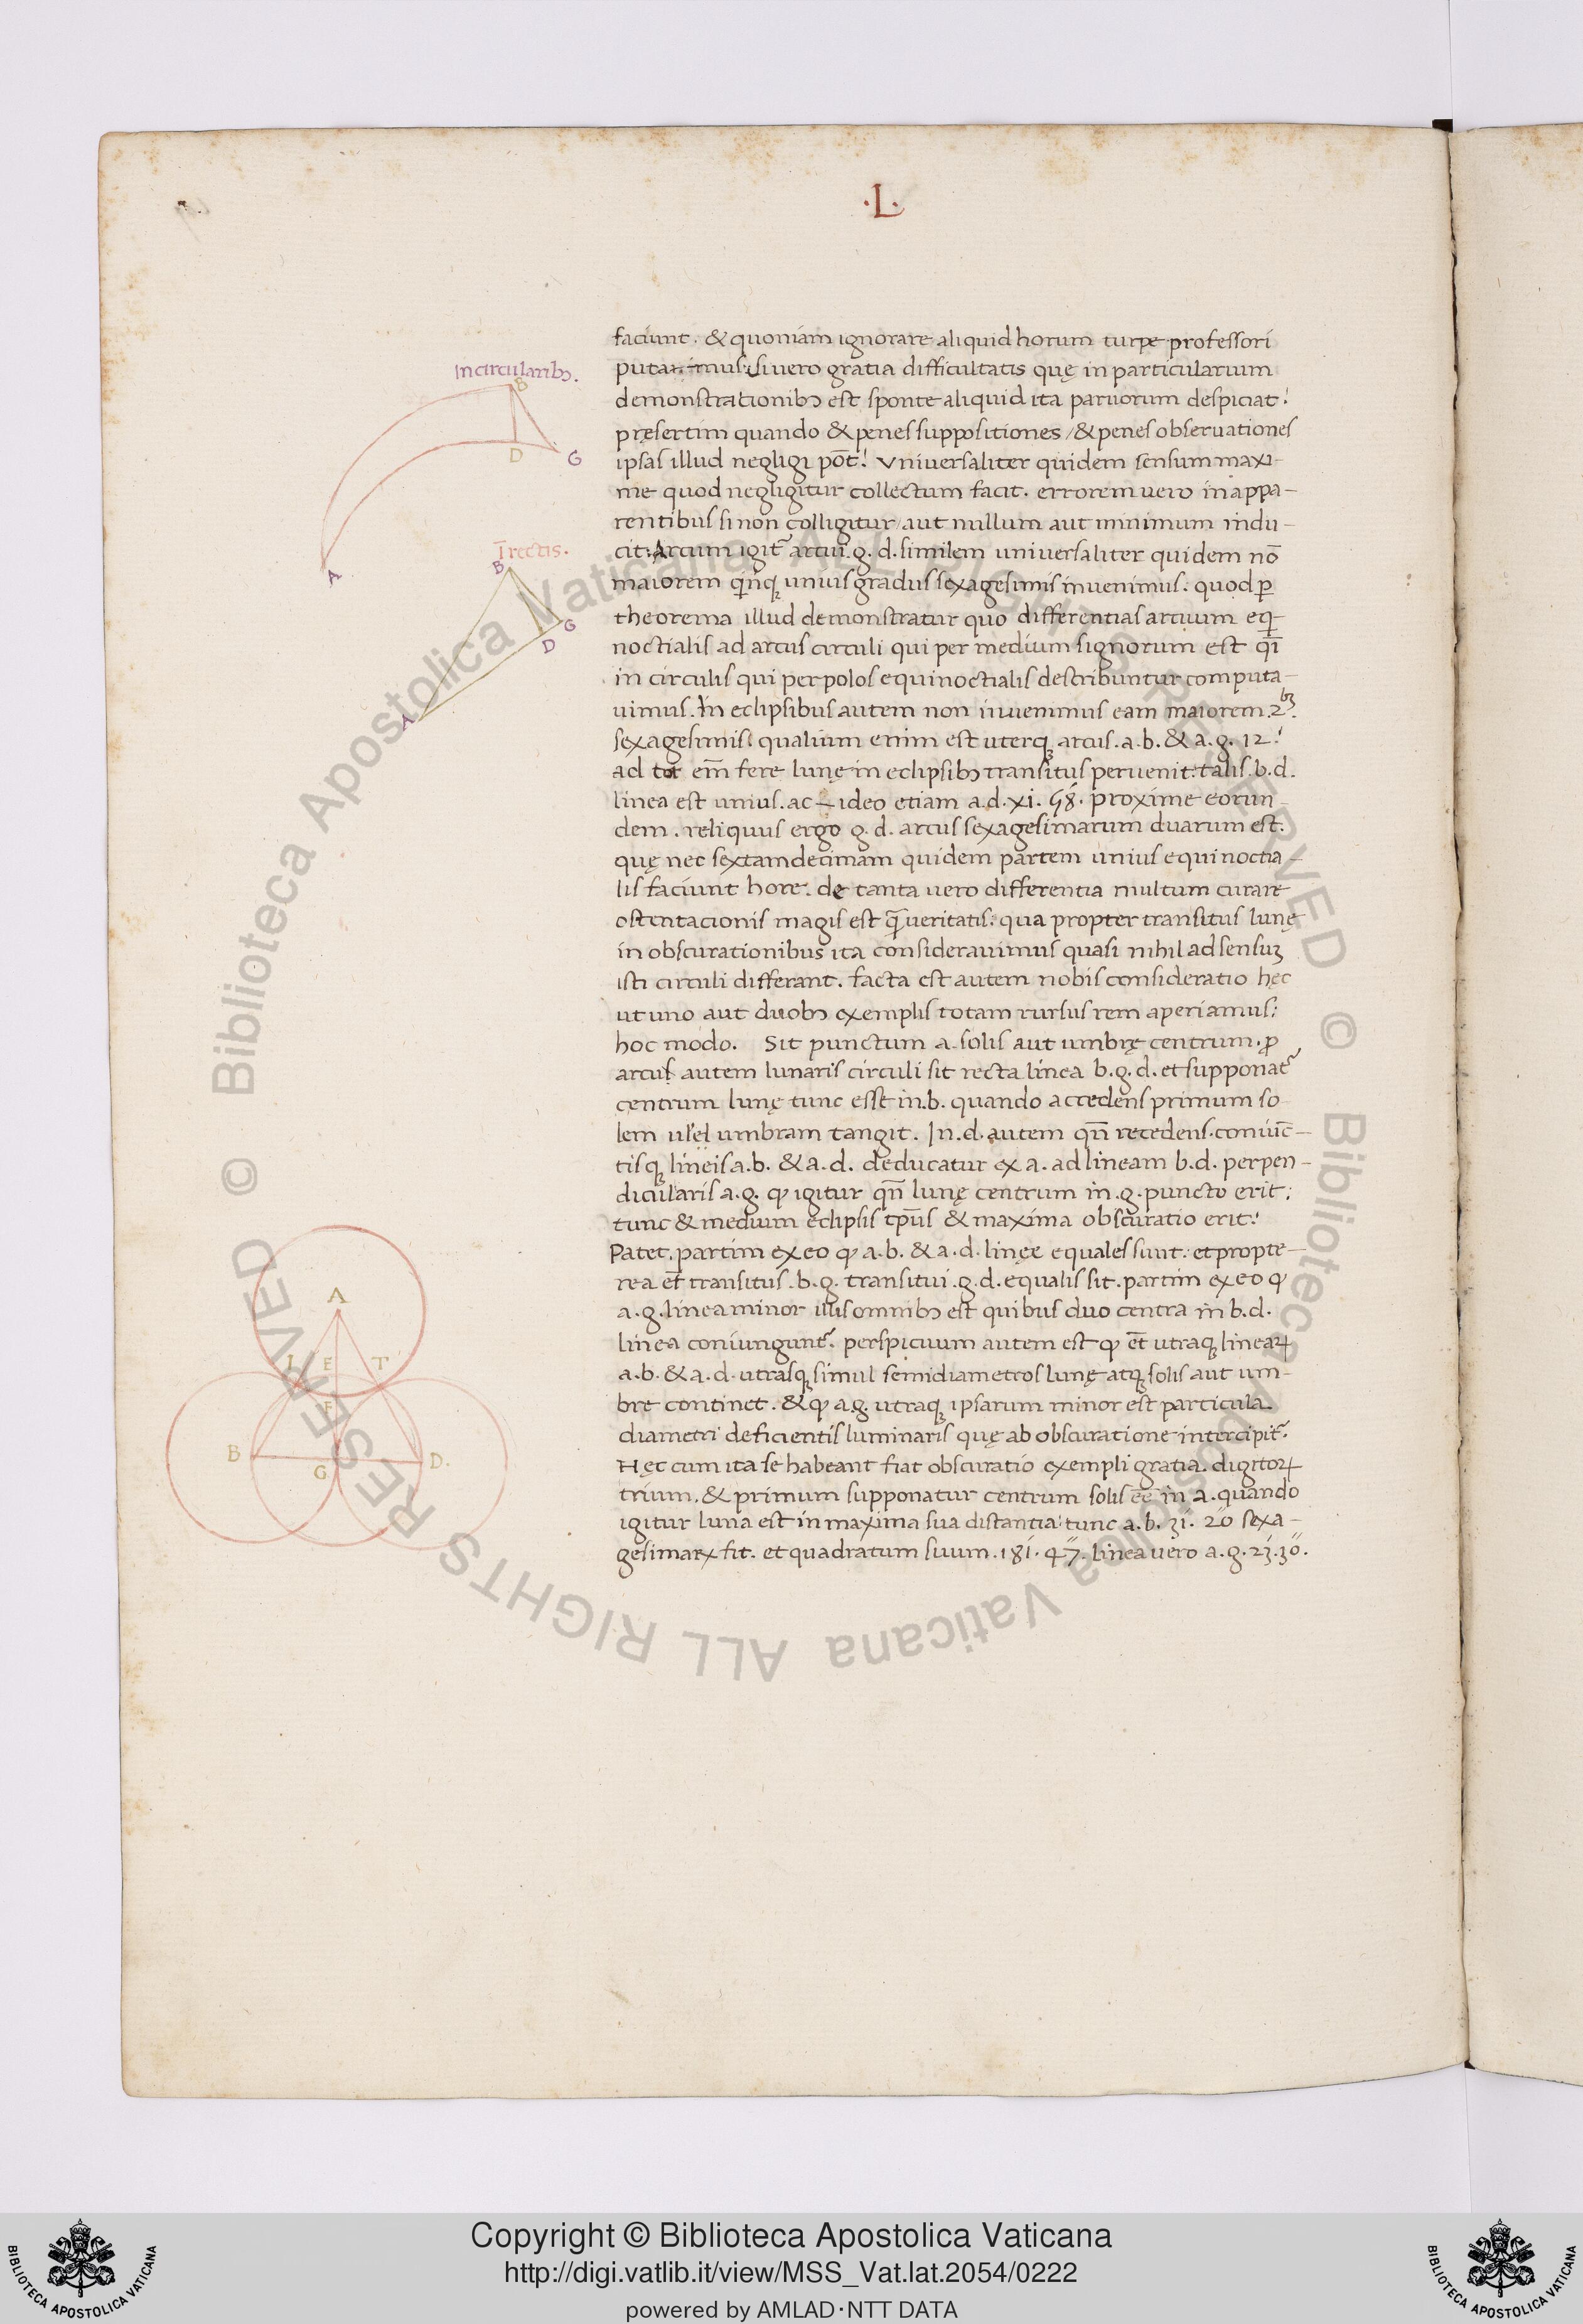 ·L·
faciunt. & quoniam ignorare aliquid horum turpe professori
In circularibꝫ.
putan imus. si uero gratia difficultatis quę in particularium
demonstrationibꝫ est sponte aliquid ita paruorum despiciat!
pręsertim quando & penes suppositiones / & penes obseruationes
ipsas illud negligi pōt! Vniuersaliter quidem sensum maxi-
me quod negligitur collectum facit. errorem uero in appa-
rentibus si non colligitur / aut nullum aut minimum indu-
cit: Arcum igit᷑ arcui .g. d. similem uniuersaliter quidem nō
Ī rectis.
maiorem qīnqꝫ unius gradus sexagesimis inuenimus. quod ꝑ
theorema illud demonstratur quo differentias arcuum eq̄-
noctialis ad arcus circuli qui per medium signorum est qī
in circulis qui per polos equinoctialis describuntur computa-
uimus. In eclipsibus autem non inuenimus eam maiorem .2bꝫ.
sexagesimis! qualium enim est uterqꝫ arcus .a.b. & a.g. 12!
ad tot em̄ fere lunę in eclipsibꝫ transitus peruenit: talis .b.d.
linea est unius. ac ideo etiam a.d. xi. 58. proxime eorun-
dem. reliquus ergo g.d. arcus sexagesimarum duarum est.
quę nec sextamdecimam quidem partem unius equinoctia-
lis faciunt hore. de tanta uero differentia multum curare
ostentacionis magis est qᷓ ueritatis: qua propter transitus lunę
in obscurationibus ita considerauimus quasi nihil ad sensuꝫ
isti circuli differant. facta est autem nobis consideratio hęc
ut uno aut duobꝫ exemplis totam rursus rem aperiamus:
hoc modo. Sit punctum a. solis aut umbrę centrum. ꝓ
arcus autem lunaris circuli sit recta linea b.g.d. et supponat᷑
centrum lunę tunc esse in .b. quando accedens primum so-
lem uel umbram tangit. In .d. autem qn̄ recedens. coniūc-
tisqꝫ lineis a.b. & a.d. deducatur ex a. ad lineam b.d. perpen-
dicularis a.g. ꝙ igitur qn̄ lunę centrum in .g. puncto erit:
tunc & medium eclipsis tp̄us & maxima obscuratio erit!
Patet. partim ex eo ꝙ a.b. & a.d. linęe equales sunt: et propte-
rea et̄ transitus .b.g. transitui .g.d. equalis sit. partim ex eo ꝙ
a.g. linea minor illis omnibꝫ est quibus duo centra in b.d.
linea coniungunt᷑. perspicuum autem est ꝙ et̄ utraqꝫ lineaꝝ
a.b. & a.d. utrasqꝫ simul semidiametros lunę atqꝫ solis aut um-
bre continet. & ꝙ a.g. utraqꝫ ipsarum minor est particula
diametri deficientis luminaris quę ab obscuratione intercipit᷑.
Hęc cum ita se habeant fiat obscuratio exempli gratia. digitoꝝ
trium. & primum supponatur centrum solis eē in a. quando
igitur luna est in maxima sua distantia: tunc a.b. 31. 20 sexa-
gesimaꝝ fit. et quadratum suum .981. 47. linea uero a.g. 23.30.
B
D
G
A
B
G
D
A
A
I
E
T
F
B
G
D.
© Biblioteca Apostolica Vaticana ALL RIGHTS RESERVED © Biblioteca Apostolica Vaticana ALL RIGHTS RESERVED
BIBLIOTECA APOSTOLICA VATICANA
Copyright © Biblioteca Apostolica Vaticana
http://digi.vatlib.it/view/MSS_Vat.lat.2054/0222
powered by AMLAD·NTT DATA
BIBLIOTECA APOSTOLICA VATICANA